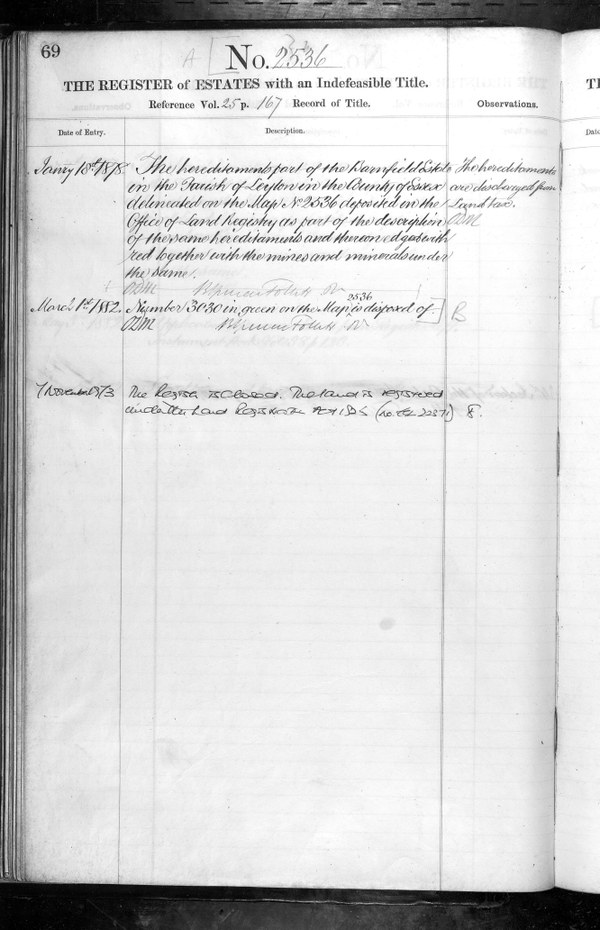 69
A
No. 2536
THE REGISTER of ESTATES with an Indefeasible Title.
Reference Vol. 25 p. 167 Record of Title.
Observations.
Date of Entry.
Description.
Janry 18th 1878.
The hereditaments part of the Barnfield Estate
in the Parish of Leyton in the County of Essex
delineated on the Map No 2536 deposited in the
Office of Land Registry as part of the description
of the same hereditaments and thereon edged with
red together with the mines and minerals under
the same.
The hereditaments
are discharged from
Land tax.
March 1st 1882.
Number 3030 in green on the Map 2536 is disposed of.
B
7 November 1973
The Register is closed. The land is registered
under the Land Registration Act 1925